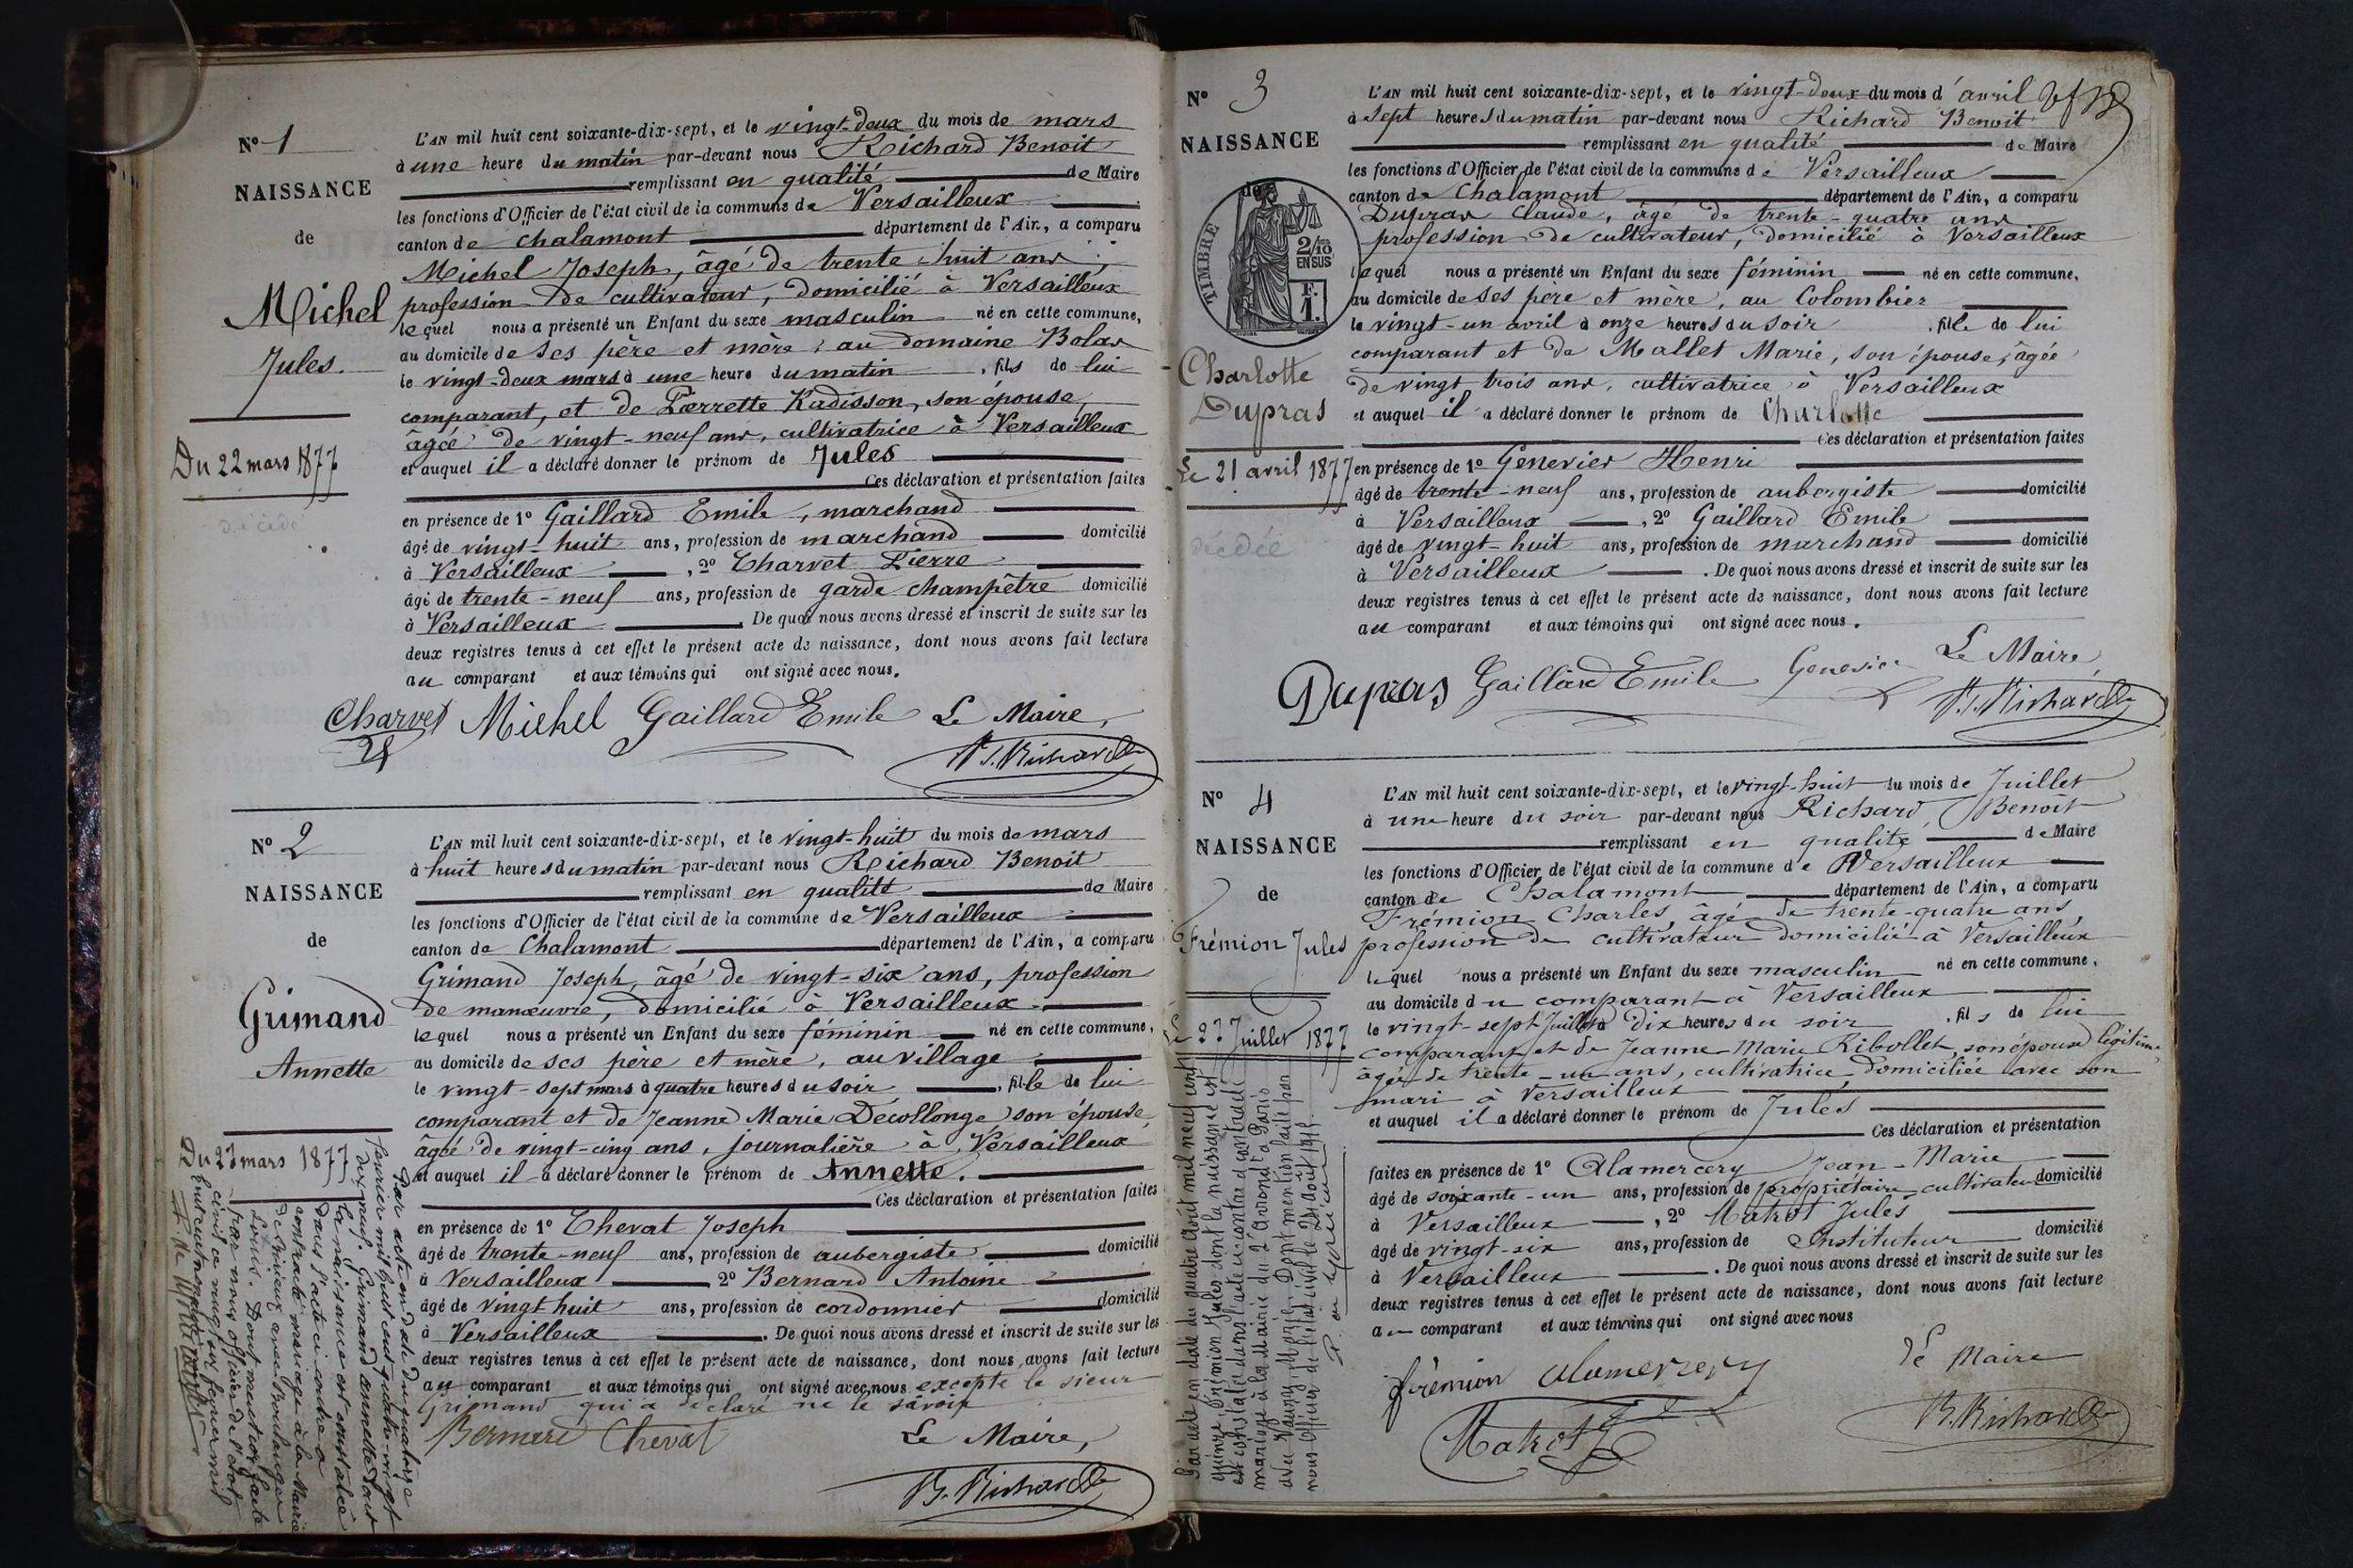 N° 1
NAISSANCE
de
Michel
Jules.
Du 22 mars 1877
décédé
L'AN mil huit cent soixante-dix-sept, et le vingt-deux du mois de mars
à une heure du matin par-devant nous Richard Benoit
remplissant en qualité de Maire
les fonctions d'Officier de l'état civil de la commune de Versailleux
canton de Chalamont département de l'Ain, a comparu
Michel Joseph, âgé de trente-huit ans,
profession de cultivateur, domicilié à Versailleux
lequel nous a présenté un Enfant du sexe masculin né en cette commune,
au domicile de ses père et mère, au domaine Bolas
le vingt-deux mars à une heure du matin, fils de lui
comparant, et de Pierrette Kadisson, son épouse,
âgée de vingt-neuf ans, cultivatrice à Versailleux
et auquel il a déclaré donner le prénom de Jules
Ces déclaration et présentation faites
en présence de 1° Gaillard Emile, marchand
âgé de vingt-huit ans, profession de marchand domicilié
à Versailleux, 2° Charvet Pierre
âgé de trente-neuf ans, profession de garde champêtre domicilié
à Versailleux. De quoi nous avons dressé et inscrit de suite sur les
deux registres tenus à cet effet le présent acte de naissance, dont nous avons fait lecture
au comparant et aux témoins qui ont signé avec nous.
Charvet Michel Gaillard Emile Le Maire,
B. Richard
N° 2
NAISSANCE
de
Grimand
Annette
Du 27 mars 1877
L'AN mil huit cent soixante-dix-sept, et le vingt-huit du mois de mars
à huit heures du matin par-devant nous Richard Benoit
remplissant en qualité de Maire
les fonctions d'Officier de l'état civil de la commune de Versailleux
canton de Chalamont département de l'Ain, a comparu
Grimand Joseph, âgé de vingt-six ans, profession
de manœuvre, domicilié à Versailleux
lequel nous a présenté un Enfant du sexe féminin né en cette commune,
au domicile de ses père et mère, au village
le vingt-sept mars à quatre heures du soir, fille de lui
comparant et de Jeanne Marie Decollonge, son épouse,
âgée de vingt-cinq ans, journalière à Versailleux
et auquel il a déclaré donner le prénom de Annette.
Ces déclaration et présentation faites
en présence de 1° Chevat Joseph
âgé de trente-neuf ans, profession de aubergiste domicilié
à Versailleux 2° Bernard Antoine
âgé de vingt huit ans, profession de cordonnier domicilié
à Versailleux. De quoi nous avons dressé et inscrit de suite sur les
deux registres tenus à cet effet le présent acte de naissance, dont nous avons fait lecture
au comparant et aux témoins qui ont signé avec nous excepté le sieur
Grimand qui a déclaré ne le savoir
Bernard Chevat Le Maire,
B. Richard
Par acte en date du quatorze
février mil huit cent quatre-vingt
dix neuf. Grimand Annette dont
la naissance est constatée
dans l'acte ci contre a
contracté mariage à la Mairie
de avec Boulanger
Louis. Dont mention faite
par nous officier de l'état
civil ce vingt février mil
huit cent
N° 3
NAISSANCE
de
TIMBRE
2/10
EN SUS
F.
1.
Charlotte
Dupras
Le 21 avril 1877
décédée
L'AN mil huit cent soixante-dix-sept, et le vingt-deux du mois d'avril
à sept heures du matin par-devant nous Richard Benoit
remplissant en qualité de Maire
les fonctions d'Officier de l'état civil de la commune de Versailleux
canton de Chalamont département de l'Ain, a comparu
Dupras Claude, âgé de trente-quatre ans
profession de cultivateur, domicilié à Versailleux
lequel nous a présenté un Enfant du sexe féminin né en cette commune,
au domicile de ses père et mère, au Colombier
le vingt-un avril à onze heures du soir, fille de lui
comparant et de Mallet Marie, son épouse, âgée
de vingt trois ans, cultivatrice à Versailleux
et auquel il a déclaré donner le prénom de Charlotte
Ces déclaration et présentation faites
en présence de 1° Genevier Henri
âgé de trente-neuf ans, profession de aubergiste domicilié
à Versailleux, 2° Gaillard Emile
âgé de vingt-huit ans, profession de marchand domicilié
à Versailleux. De quoi nous avons dressé et inscrit de suite sur les
deux registres tenus à cet effet le présent acte de naissance, dont nous avons fait lecture
au comparant et aux témoins qui ont signé avec nous.
Dupras Gaillard Emile Genevier Le Maire,
B. Richard
N° 4
NAISSANCE
de
Frémion Jules
Le 27 Juillet 1877
L'AN mil huit cent soixante-dix-sept, et le vingt-huit du mois de Juillet
à une heure du soir par-devant nous Richard, Benoît
remplissant en qualité de Maire
les fonctions d'Officier de l'état civil de la commune de Versailleux
canton de Chalamont département de l'Ain, a comparu
Frémion Charles, âgé de trente-quatre ans,
profession de cultivateur domicilié à Versailleux
lequel nous a présenté un Enfant du sexe masculin né en cette commune,
au domicile du comparant à Versailleux
le vingt-sept Juillet à dix heures du soir, fils de lui
comparant et de Jeanne-Marie Ribollet, son épouse légitime,
âgée de trente-un ans, cultivatrice, domiciliée avec son
mari à Versailleux
et auquel il a déclaré donner le prénom de Jules
Ces déclaration et présentation
faites en présence de 1° Alamercery Jean-Marie
âgé de soixante-un ans, profession de propriétaire cultivateur domicilié
à Versailleux, 2° Matrot Jules
âgé de vingt-six ans, profession de Instituteur domicilié
à Versailleux. De quoi nous avons dressé et inscrit de suite sur les
deux registres tenus à cet effet le présent acte de naissance, dont nous avons fait lecture
au comparant et aux témoins qui ont signé avec nous
frémion alamercery Le Maire
Matrot B. Richard
Par acte en date du quatre Août mil neuf cent
quinze, Frémion Jules dont la naissance est
constatée dans l'acte ci-contre a contracté
mariage à la Mairie du 2e arrondt à Paris
avec Marie. Dont mention faite par
nous Officier de l'état civil le 24 Août 1915.